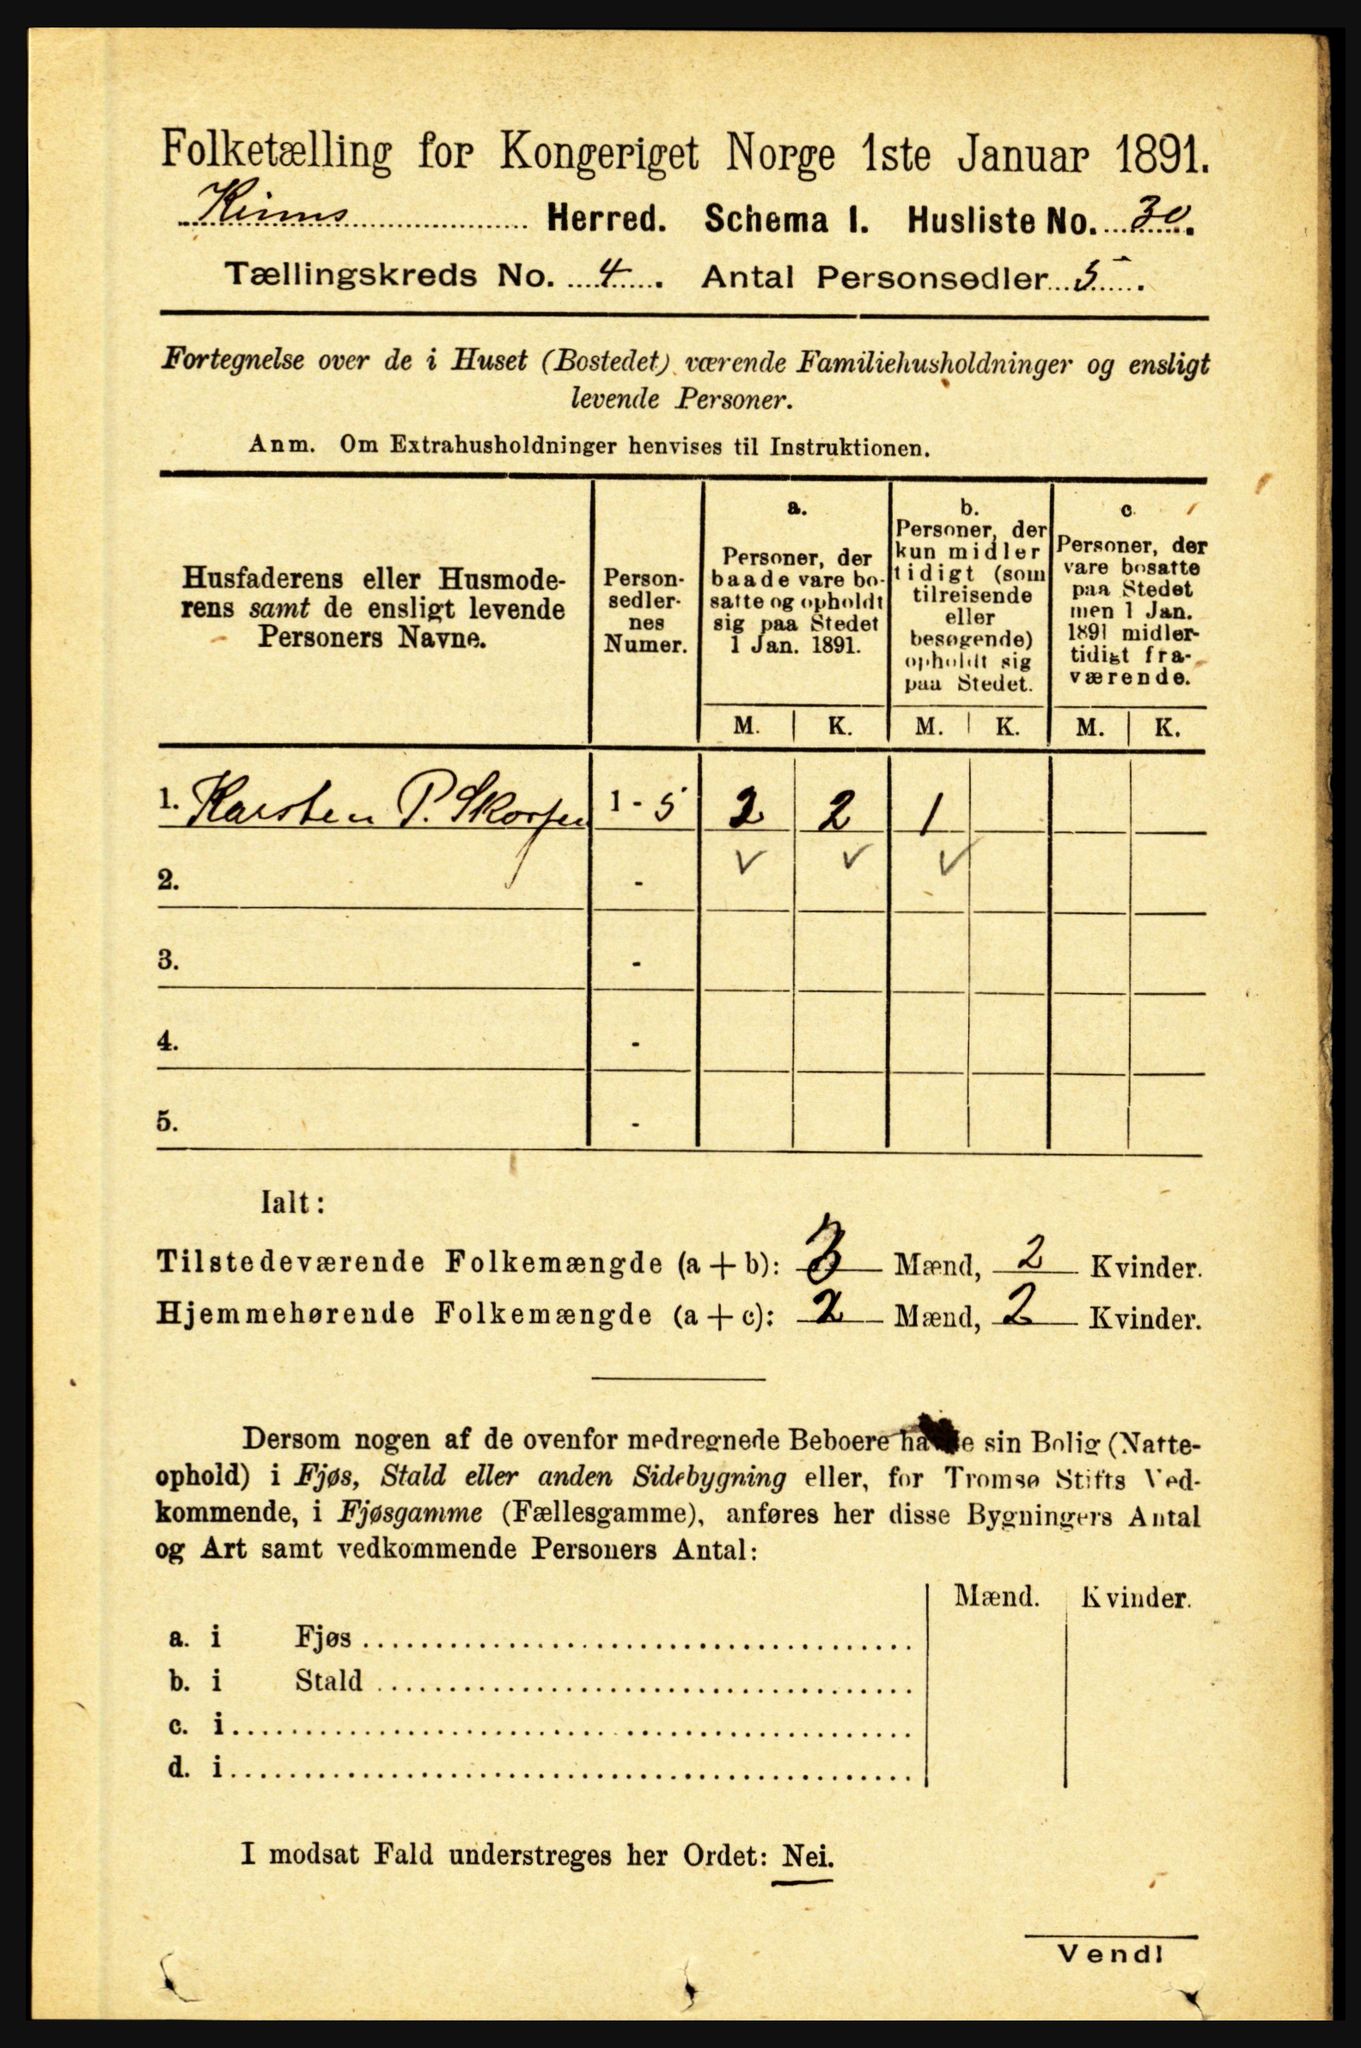 Folketælling for Kongeriget Norge 1ste Januar 1891.
Kinns Herred. Schema I. Husliste No. 30.
Tællingskreds No. 4. Antal Personsedler 5.
Fortegnelse over de i Huset (Bostedet) værende Familiehusholdninger og ensligt
levende Personer.
Anm. Om Extrahusholdninger henvises til Instruktionen.
Husfaderens eller Husmode-
rens samt de ensligt levende
Personers Navne.
Person-
sedler-
nes
Numer.
a.
Personer, der
baade vare bo-
satte og opholdt
sig paa Stedet
1 Jan. 1891.
b.
Personer, der
kun midler
tidigt (som
tilreisende
eller
besøgende)
opholdt sig
paa Stedet.
c
Personer, der
vare bosatte
paa Stedet
men 1 Jan.
1891 midler-
tidigt fra-
værende.
M. K. M. K. M. K.
1. Karsten P. Skorpen 1 - 5 2 2 1
2. -
3. -
4. -
5. -
Ialt:
Tilstedeværende Folkemængde (a + b): 3 Mænd, 2 Kvinder.
Hjemmehørende Folkemængde (a + c): 2 Mænd, 2 Kvinder.
Dersom nogen af de ovenfor medregnede Beboere havde sin Bolig (Natte-
ophold) i Fjøs, Stald eller anden Sidebygning eller, for Tromsø Stifts Ved-
kommende, i Fjøsgamme (Fællesgamme), anføres her disse Bygningers Antal
og Art samt vedkommende Personers Antal:
Mænd. Kvinder.
a. i Fjøs
b. i Stald
c. i
d. i
I modsat Fald understreges her Ordet: Nei.
Vend!